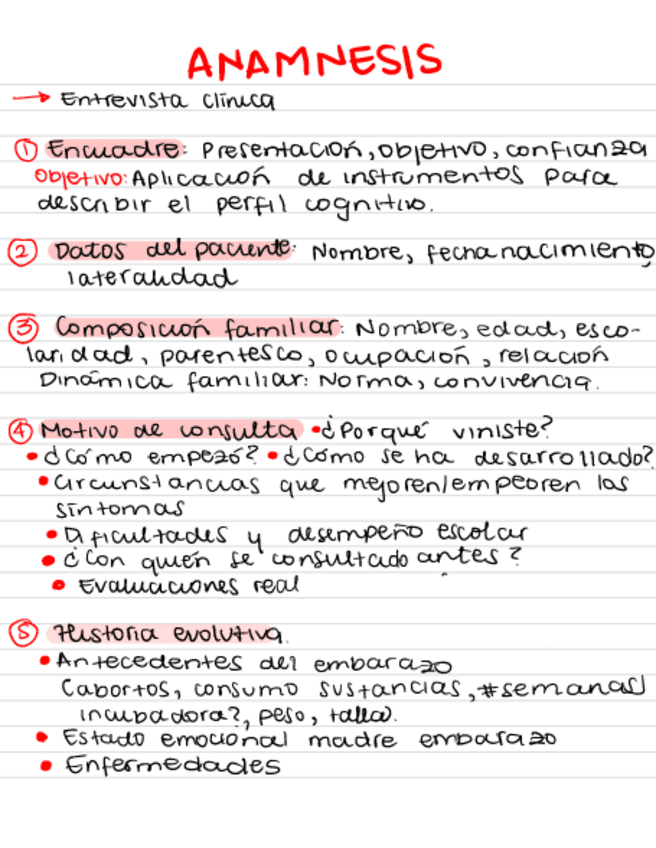 ANAMNESIS
→ Entrevista clínica
① Encuadre: Presentación, objetivo, confianza
Objetivo: Aplicación de instrumentos para
describir el perfil cognitivo.
② Datos del paciente: Nombre, fecha nacimiento,
lateralidad
③ Composición familiar: Nombre, edad, esco-
laridad, parentesco, ocupación, relación
Dinámica familiar: Norma, convivencia.
④ Motivo de consulta • ¿Porqué viniste?
• ¿Cómo empezó? • ¿Cómo se ha desarrollado?
• Circunstancias que mejoren/empeoren las
síntomas
• Dificultades y desempeño escolar
• ¿Con quién se consultado antes?
• Evaluaciones real
⑤ Historia evolutiva.
• Antecedentes del embarazo
(abortos, consumo sustancias, #semanas)
incubadora?, peso, talla).
• Estado emocional madre embarazo
• Enfermedades